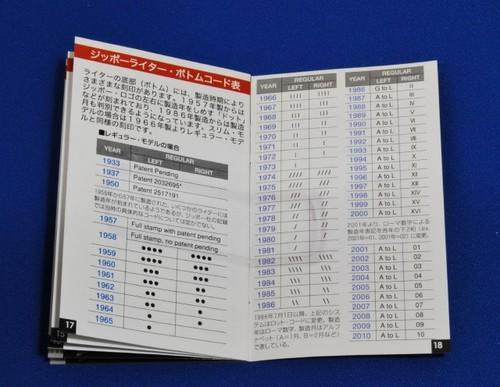 ジッポーライター・ボトムコード表
ライターの底部（ボトム）には、製造時期により
さまざまな刻印があります。1957年製からは
ジッポー・ロゴの左右に製造年をしめす「ドット」
などが刻まれており、1986年製からは製造
月も判別できるようになっています。スリム・モ
デルの場合は1966年製よりレギュラー・モデ
ルと同様の刻印です。
■レギュラー・モデルの場合
YEAR REGULAR
LEFT RIGHT
1933 Patent Pending
1937 Patent 2032695*
1950 Patent 2517191
1957 Full stamp with patent pending
1958 Full stamp, no patent pending
1959 •••• •••
1960 ••• •••
1961 ••• ••
1962 •• ••
1963 •• •
1964 • •
1965 •
17
YEAR REGULAR
LEFT RIGHT
1966 |||| ||||
1967 |||| |||
1968 ||| |||
1969 ||| ||
1970 || ||
1971 || |
1972 | |
1973 |
1974 //// ////
1975 //// ///
1976 /// ///
1977 /// //
1978 // //
1979 // /
1980 / /
1981 /
1982 \\\\ \\\\
1983 \\\\ \\\
1984 \\\ \\\
1985 \\\ \\
1986 \\ \\
1986年7月1日以降、上記のシス
テムはロット・コードに変更。製造
年はローマ数字、製造月はアルフ
ァベット（A=1月、B=2月など）
で表している。
YEAR REGULAR
LEFT RIGHT
1986 G to L II
1987 A to L III
1988 A to L IV
1989 A to L V
1990 A to L VI
1991 A to L VII
1992 A to L VIII
1993 A to L IX
1994 A to L X
1995 A to L XI
1996 A to L XII
1997 A to L XIII
1998 A to L XIV
1999 A to L XV
2000 A to L XVI
2001年より、ローマ数字による
製造年表記を西暦の下2ケタ（ex.
2001年=01、2001年=02）に変更。
2001 A to L 01
2002 A to L 02
2003 A to L 03
2004 A to L 04
2005 A to L 05
2006 A to L 06
2007 A to L 07
2008 A to L 08
2009 A to L 09
2010 A to L 10
18